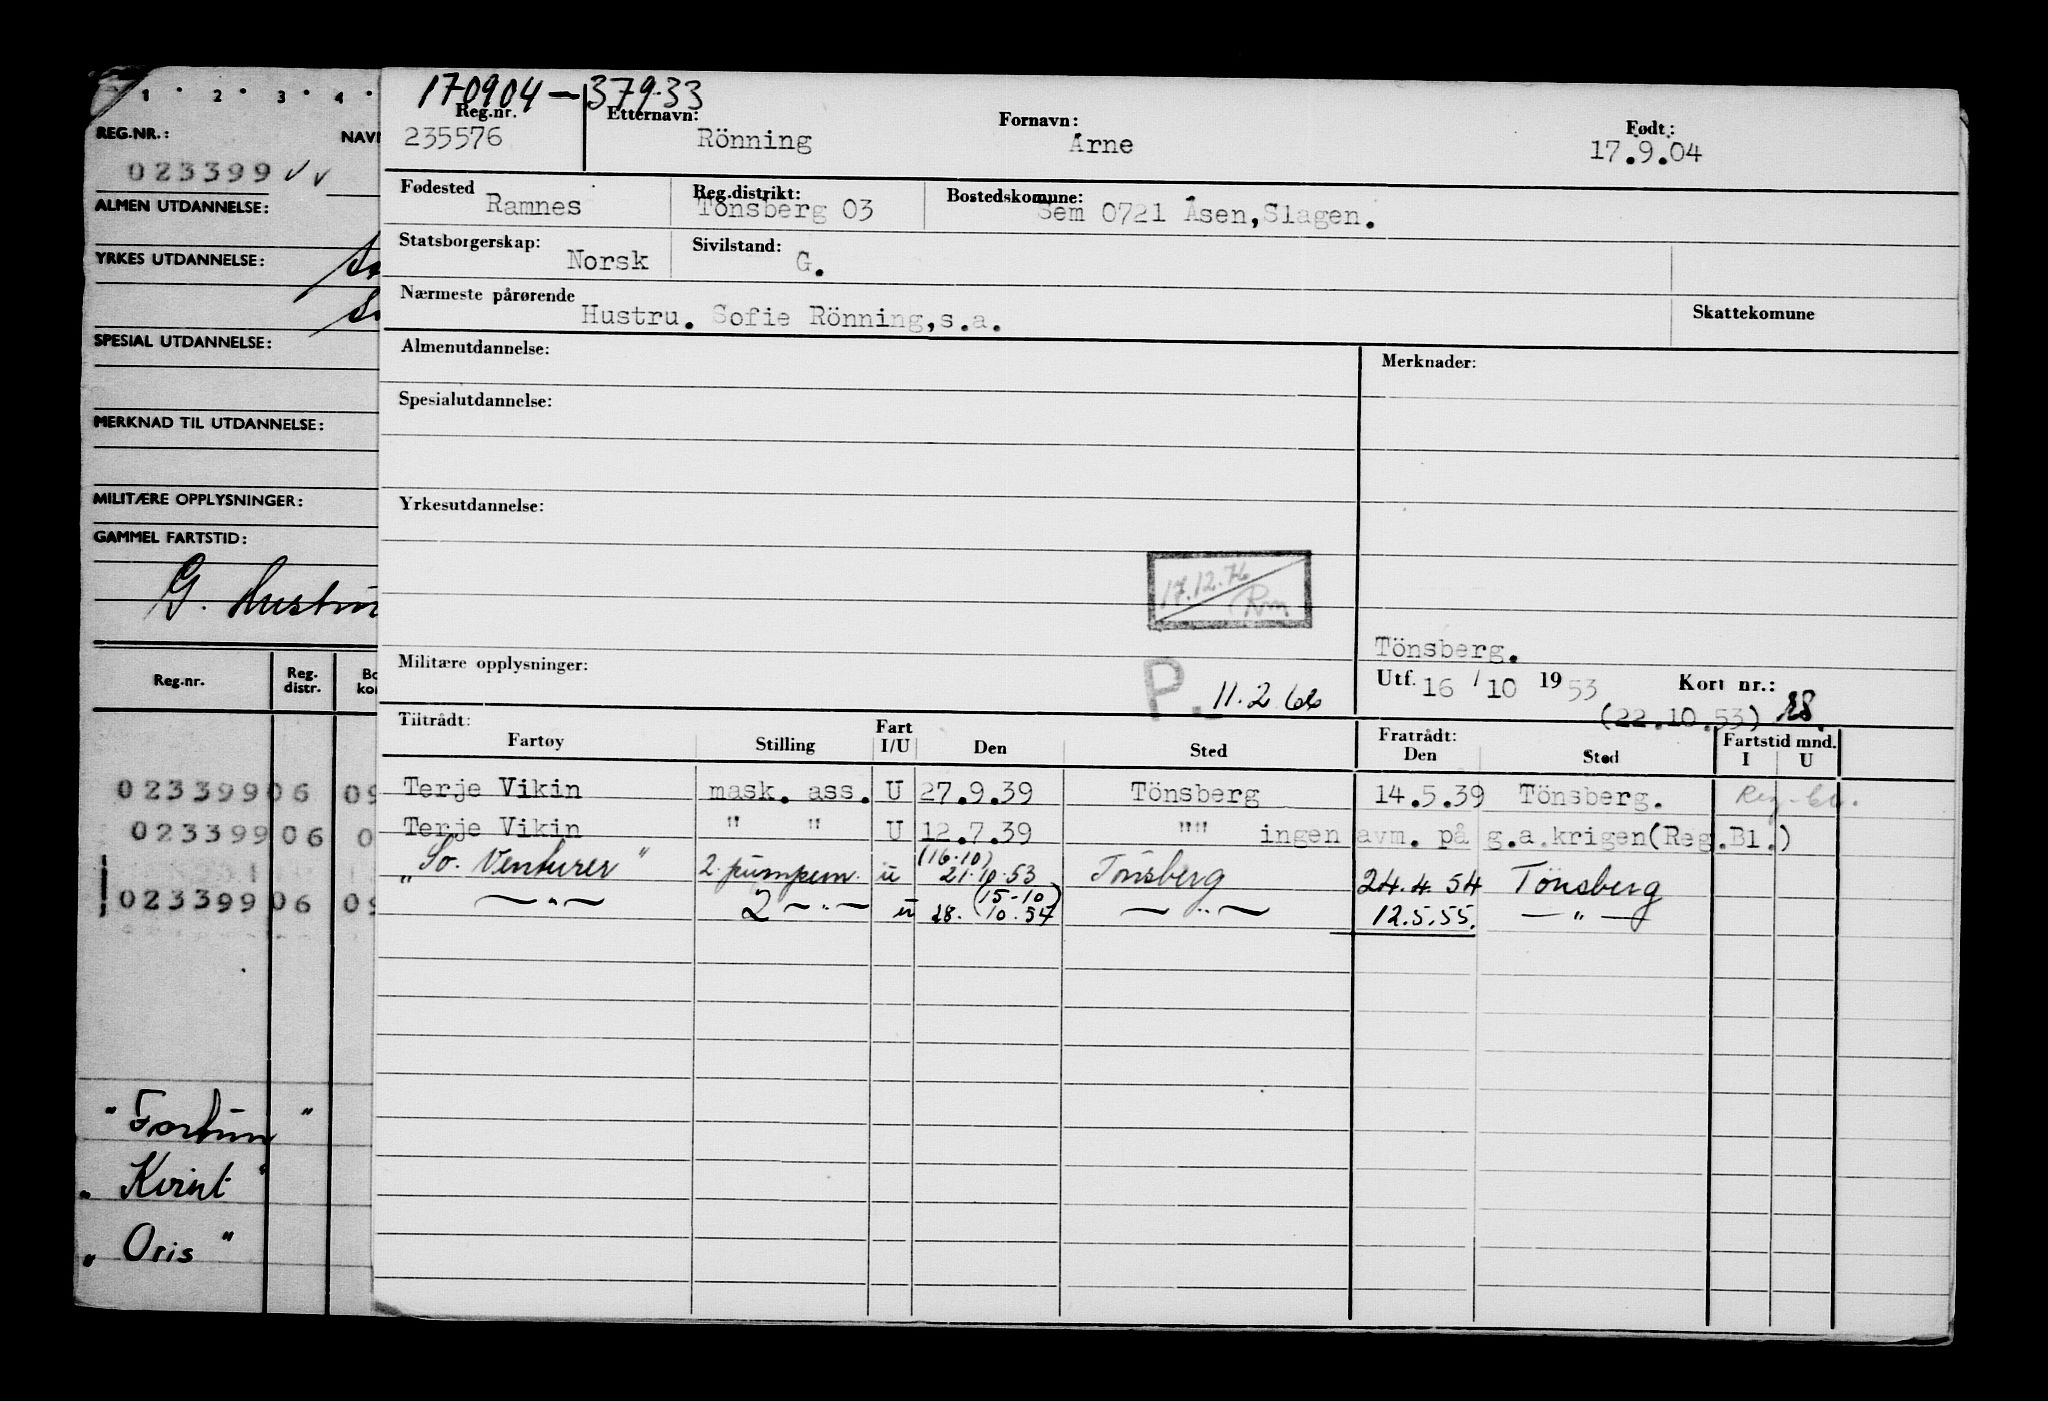 1 · 2 · 3 · 4 ·
REG.NR.:
023399
ALMEN UTDANNELSE:
YRKES UTDANNELSE:
SPESIAL UTDANNELSE:
MERKNAD TIL UTDANNELSE:
MILITÆRE OPPLYSNINGER:
GAMMEL FARTSTID:
G. Hustru
Reg.nr. Reg. distr.
023399 06 09
023399 06 0
023399 06 09
"Fortun"
"Kvint"
"Oris"
170904-37933
Reg.nr. Etternavn: Fornavn: Født:
235576 Rönning Arne 17.9.04
Fødested Reg.distrikt: Bostedskomune:
Ramnes Tönsberg 03 Sem 0721 Åsen,Slagen.
Statsborgerskap: Sivilstand:
Norsk G.
Nærmeste pårørende Skattekomune
Hustru. Sofie Rönning,s.a.
Almenutdannelse: Merknader:
Spesialutdannelse:
Yrkesutdannelse:
17.12.76
Rm
Tönsberg.
Militære opplysninger: P. 11.2.66
Utf. 16 / 10 1953 Kort nr.: 18.
(22.10.53)
Tiltrådt: Fart Fratrådt: Fartstid mnd.
Fartøy Stilling I/U Den Sted Den Sted I U
Terje Vikin mask. ass. U 27.9.39 Tönsberg 14.5.39 Tönsberg. Reg.-bl.
Terje Vikin " " U 12.7.39 "" ingen avm. på g.a.krigen(Reg.Bl.)
"So. Venturer" 2. pumpem. u (16.10) 21.10.53 Tönsberg 24.4.54 Tönsberg
—"— 2 —"— u (15-10) 28.10.54 —"— 12.5.55. —"—